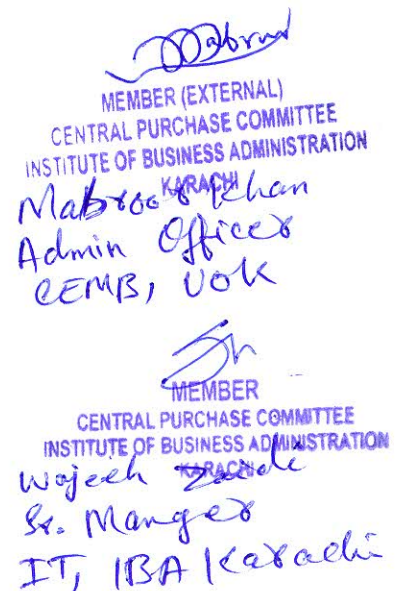 Mabroor
MEMBER (EXTERNAL)
CENTRAL PURCHASE COMMITTEE
INSTITUTE OF BUSINESS ADMINISTRATION
KARACHI
Mabroor Khan
Admin Officer
CEMB, UOK
MEMBER
CENTRAL PURCHASE COMMITTEE
INSTITUTE OF BUSINESS ADMINISTRATION
KARACHI
Wajeeh Zaidi
Sr. Manger
IT, IBA Karachi